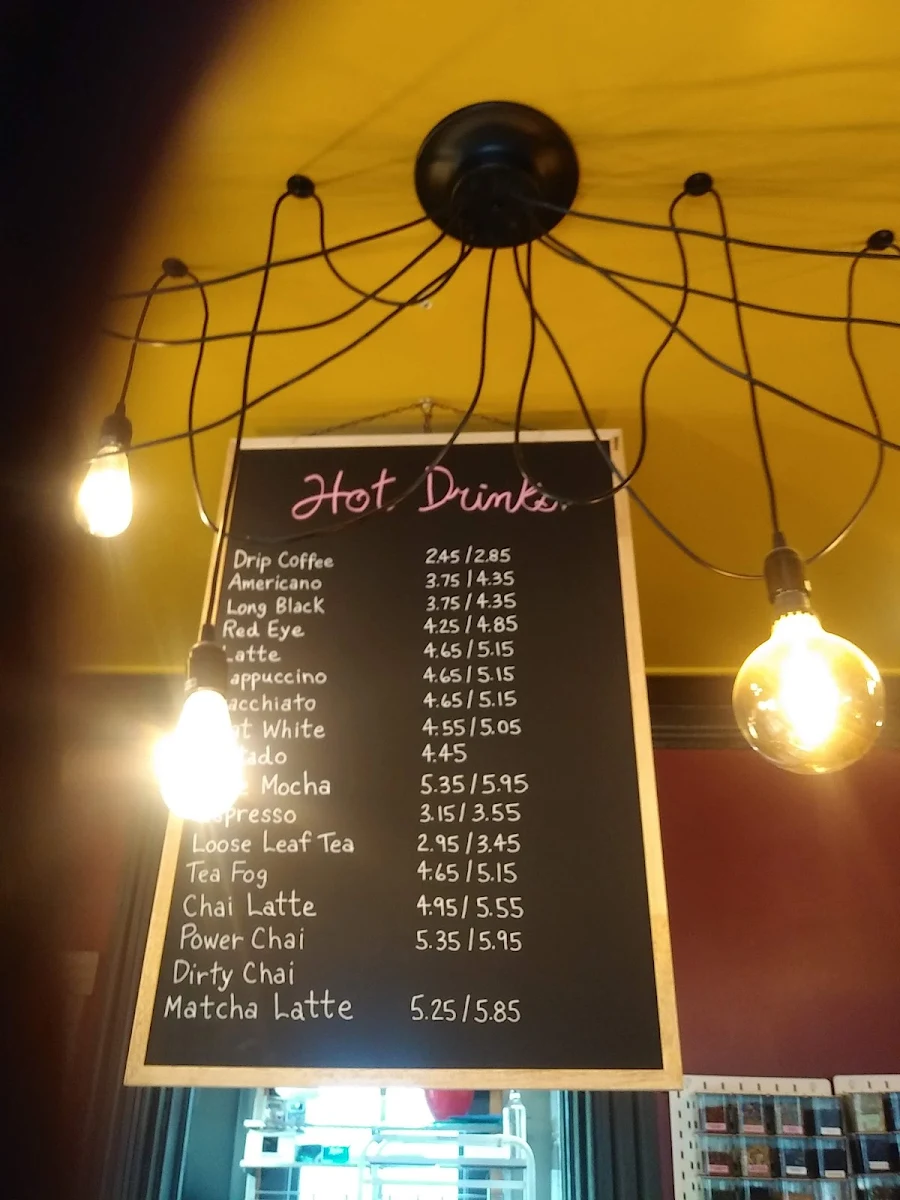 Hot Drinks
Drip Coffee 2.45/2.85
Americano 3.75/4.35
Long Black 3.75/4.35
Red Eye 4.25/4.85
Latte 4.65/5.15
appuccino 4.65/5.15
acchiato 4.65/5.15
at White 4.55/5.05
tado 4.45
e Mocha 5.35/5.95
spresso 3.15/3.55
Loose Leaf Tea 2.95/3.45
Tea Fog 4.65/5.15
Chai Latte 4.95/5.55
Power Chai 5.35/5.95
Dirty Chai
Matcha Latte 5.25/5.85